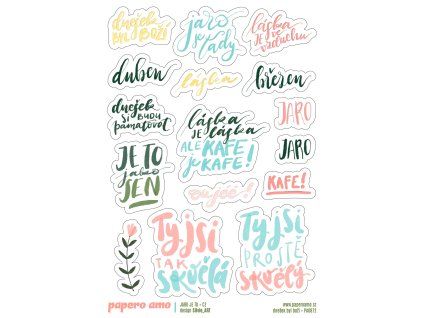 dnešek
byl BOŽÍ
jaro
je
tady
láska
JE ve
vzduchu
duben
láska
březen
dnešek
SI BUDU
pamatovat
láska
JE láska
ALE KAFE
je KAFE!
JARO
JARO
JE TO
jako
SEN
KAFE!
Ty jsi
TAK
skvělá
Ty jsi
PROSTĚ
skvělý
papero amo
JARO JE TU - CZ
design Silvie_ART
www.paperoamo.cz
dnešek byl boží - PA0072